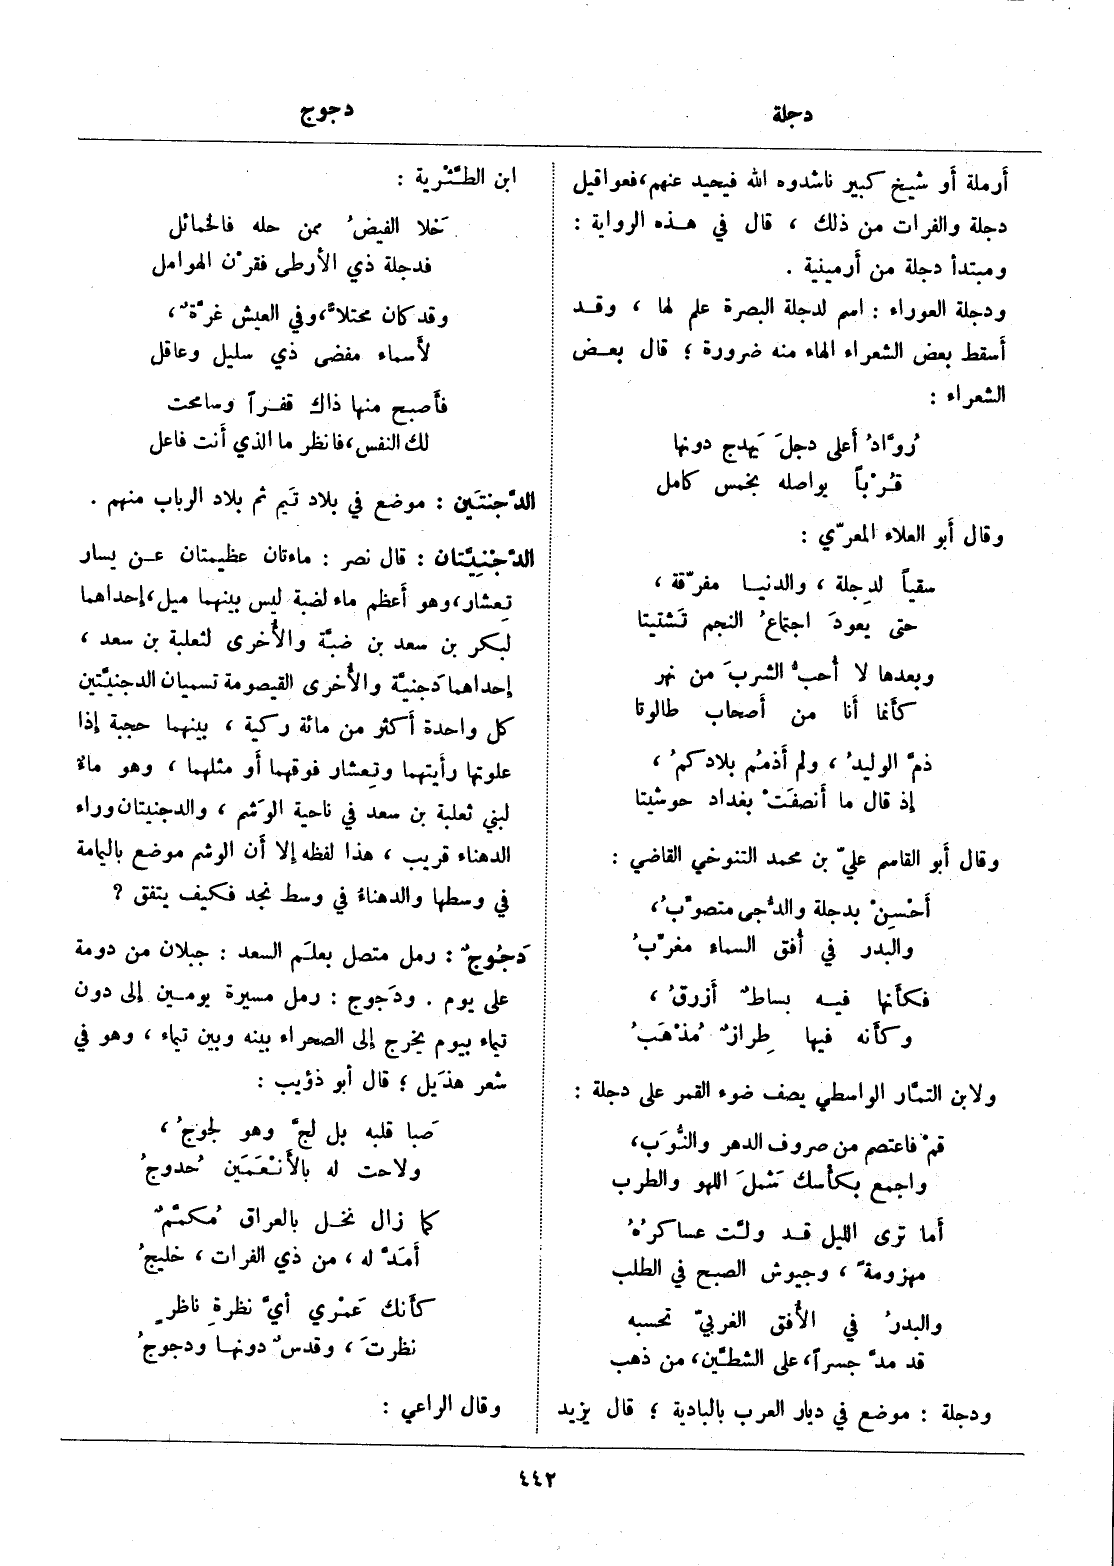 دجلة
دجوج
أرملة أو شيخ كبير ناشدوه الله فيحيد عنهم، فعواقيل
دجلة والفرات من ذلك ، قال في هذه الرواية :
ومبتدأ دجلة من أرمينية .
ودجلة العوراء : اسم لدجلة البصرة علم لها ، وقد
أسقط بعض الشعراء الهاء منه ضرورة ؛ قال بعض
الشعراء :
رُوّادُ أعلى دجلَ يَهدج دونها
قُرْباً يواصله بخمس كامل
وقال أبو العلاء المعرّي :
سقياً لدِجلة ، والدنيا مفرّقة ،
حتى يعودَ اجتماعُ النجم تَشتيتا
وبعدها لا أُحبُّ الشربَ من نهر
كأنما أنا من أَصحاب طالوتا
ذمَّ الوليدُ ، ولم أَذمُم بلادكمُ ،
إذ قال ما أَنصفَتْ بغداد حوشيتا
وقال أبو القاسم عليّ بن محمد التنوخي القاضي :
أَحْسِنْ بدجلة والدُّجى متصوّبُ،
والبدر في أُفق السماء مغرّبُ
فكأنها فيه بساطٌ أزرقُ ،
وكأنه فيها طِرازٌ مُذْهَبُ
ولابن التمَّار الواسطي يصف ضوء القمر على دجلة :
قمْ فاعتصم من صروف الدهر والنُّوَب،
واجمع بكأسك شَملَ اللهو والطرب
أما ترى الليل قد ولَّت عساكرُهُ
مهزومةً ، وجيوش الصبح في الطلب
والبدرُ في الأُفق الغربيّ تحسبه
قد مدَّ جسراً، على الشطَّين، من ذهب
ودجلة : موضع في ديار العرب بالبادية ؛ قال يزيد
ابن الطَّثْرية :
خَلا الفيضُ ممن حله فالخمائل
فدجلة ذي الأرطى فقرْن الهوامل
وقد كان محتلاًّ، وفي العيش غرَّةٌ،
لأَسماء مفضى ذي سليل وعاقل
فأَصبح منها ذاك قفراً وسامحت
لك النفس، فانظر ما الذي أَنت فاعل
الدَّجنتَين : موضع في بلاد تَيم ثم بلاد الرباب منهم .
الدَّجْنِيَّتان : قال نصر : ماءتان عظيمتان عن يسار
تِعشار، وهو أَعظم ماء لضبة ليس بينهما ميل، إحداهما
لبكر بن سعد بن ضبَّة والأُخرى لثعلبة بن سعد ،
إحداهما دَجنيَّة والأُخرى القيصومة تسميان الدجنيَّتين
كل واحدة أكثر من مائة ركية ، بينهما حجبة إذا
علوتها رأيتهما وتِعشار فوقهما أو مثلهما ، وهو ماءٌ
لبني ثعلبة بن سعد في ناحية الوَشم ، والدجنيتان وراء
الدهناء قريب ، هذا لفظه إلا أن الوشم موضع باليمامة
في وسطها والدهناءُ في وسط نجد فكيف يتفق ؟
دَجُوجٌ : رمل متصل بعلَم السعد : جبلان من دومة
على يوم . ودَجوج : رمل مسيرة يومين إلى دون
تيماء بيوم يخرج إلى الصحراء بينه وبين تيماء ، وهو في
شعر هذَيل ؛ قال أبو ذؤيب :
صَبا قلبه بل لجَّ وهو لجوجُ ،
ولاحت له بالأَنْعَمَين حُدوجُ
كما زال نخل بالعراق مُكمَّمٌ
أمَدَّ له ، من ذي الفرات ، خليجُ
كأنك عَمْري أيَّ نظرةِ ناظرٍ
نظرتَ ، وقدسٌ دونها ودجوجُ
وقال الراعي :
٤٤٢